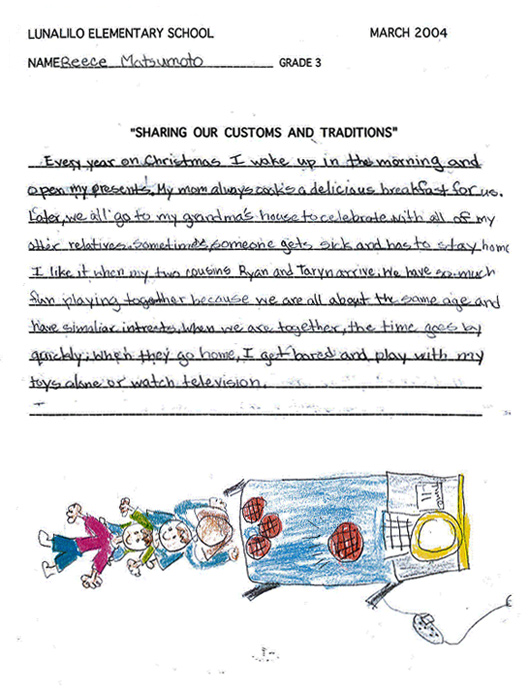 LUNALILO ELEMENTARY SCHOOL MARCH 2004
NAME Reece Matsumoto GRADE 3
"SHARING OUR CUSTOMS AND TRADITIONS"
Every year on Christmas I wake up in the morning and
open my presents. My mom always cooks a delicious breakfast for us.
Later, we all go to my grandma's house to celebrate with all of my
other relatives. Sometimes, someone gets sick and has to stay home
I like it when my two cousins Ryan and Taryn arrive. We have so much
fun playing together because we are all about the same age and
have similiar intrests. When we are together, the time goes by
quickly. When they go home, I get bored and play with my
toys alone or watch television.
-1-